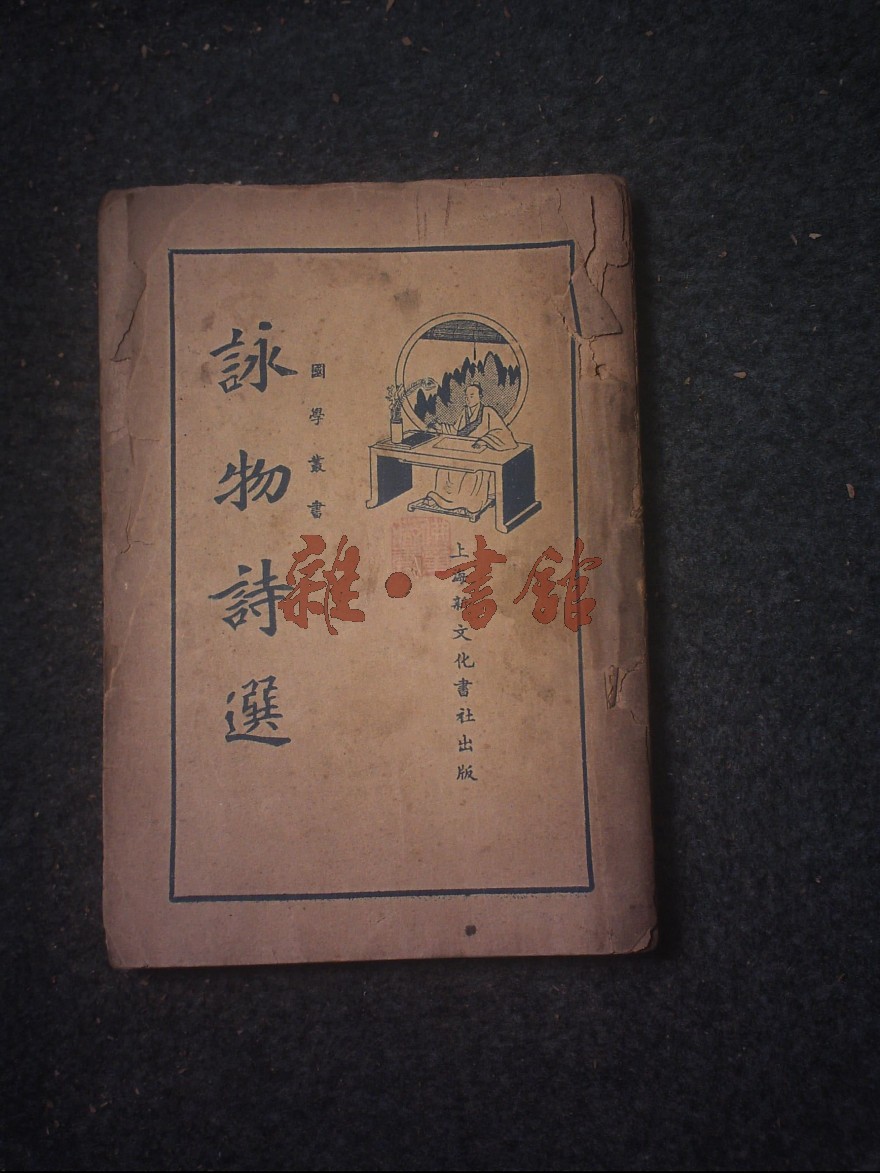 詠物詩選
國學叢書
上海新文化書社出版
雜·書館